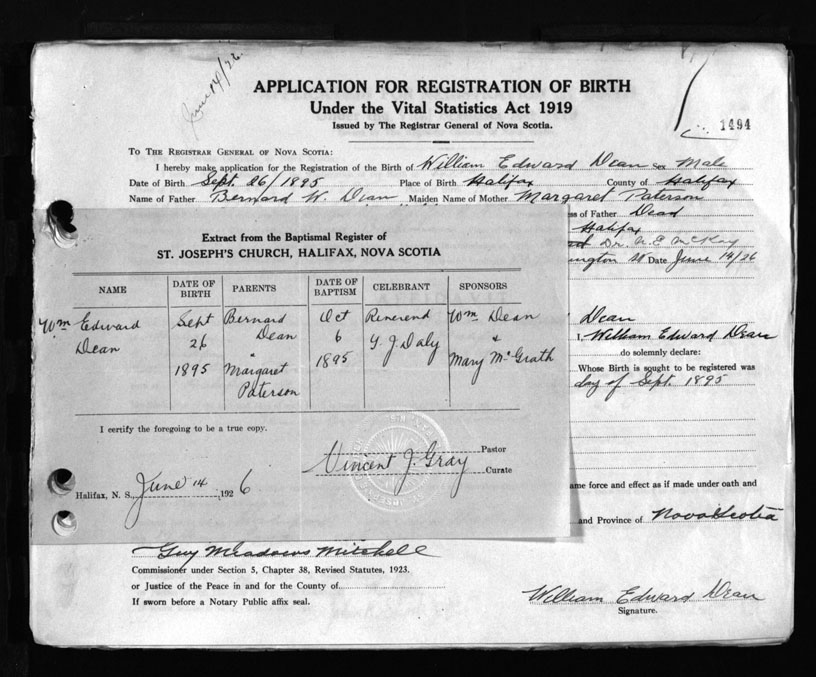 June 14/26.
APPLICATION FOR REGISTRATION OF BIRTH
Under the Vital Statistics Act 1919
Issued by The Registrar General of Nova Scotia.
1494
TO THE REGISTRAR GENERAL OF NOVA SCOTIA:
I hereby make application for the Registration of the Birth of William Edward Dean Sex Male
Date of Birth Sept. 26/1895 Place of Birth Halifax County of Halifax
Name of Father Bernard W. Dean Maiden Name of Mother Margaret Paterson
ss of Father Dead
Halifax
Dr. McKay
ington St Date June 14/26
Extract from the Baptismal Register of
ST. JOSEPH'S CHURCH, HALIFAX, NOVA SCOTIA
NAME DATE OF BIRTH PARENTS DATE OF BAPTISM CELEBRANT SPONSORS
Wm Edward Sept Bernard Oct Reverend Wm Dean
Dean 26 Dean 6 G. J Daly &
1895 " Margaret 1895 Mary McGrath
Paterson
I certify the foregoing to be a true copy.
Vincent J. Gray Pastor
Curate
Halifax, N. S. June 14, 1926
Dean
I, William Edward Dean
do solemnly declare:
Whose Birth is sought to be registered was
day of Sept. 1895
ame force and effect as if made under oath and
and Province of Nova Scotia
Guy Meadows Mitchell
Commissioner under Section 5, Chapter 38, Revised Statutes, 1923.
or Justice of the Peace in and for the County of
If sworn before a Notary Public affix seal.
William Edward Dean
Signature.